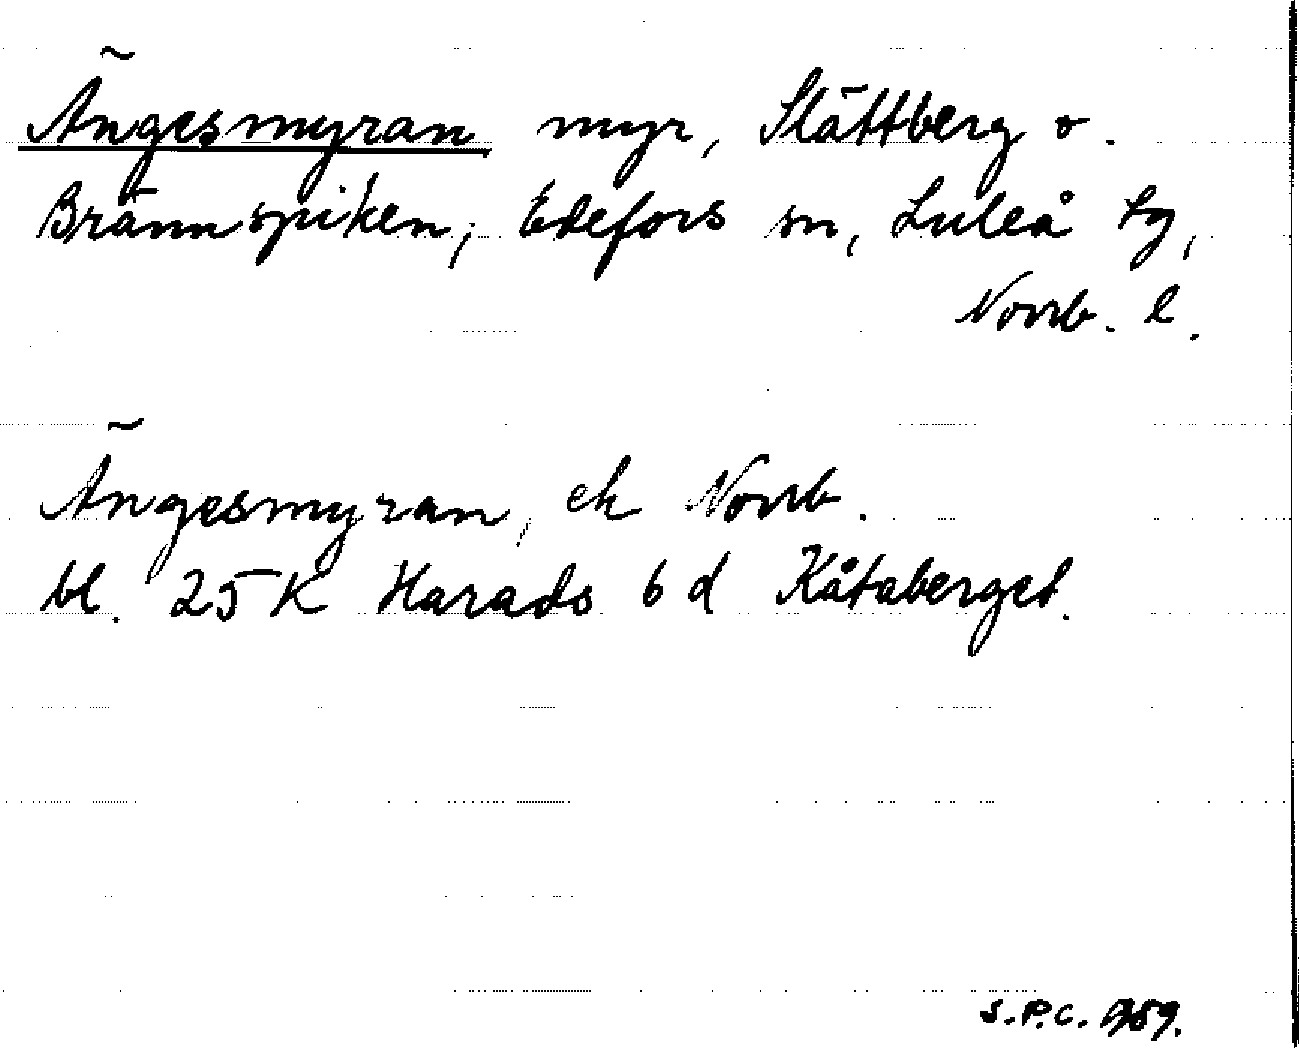 Ängesmyran myr, Slättberg o.
Brännspiken, Edefors sn, Luleå tg,
Norrb. l.
Ängesmyran, ek Norrb.
bl. 25 K Harads 6 d Kåtaberget.
S.P.C. 1959.